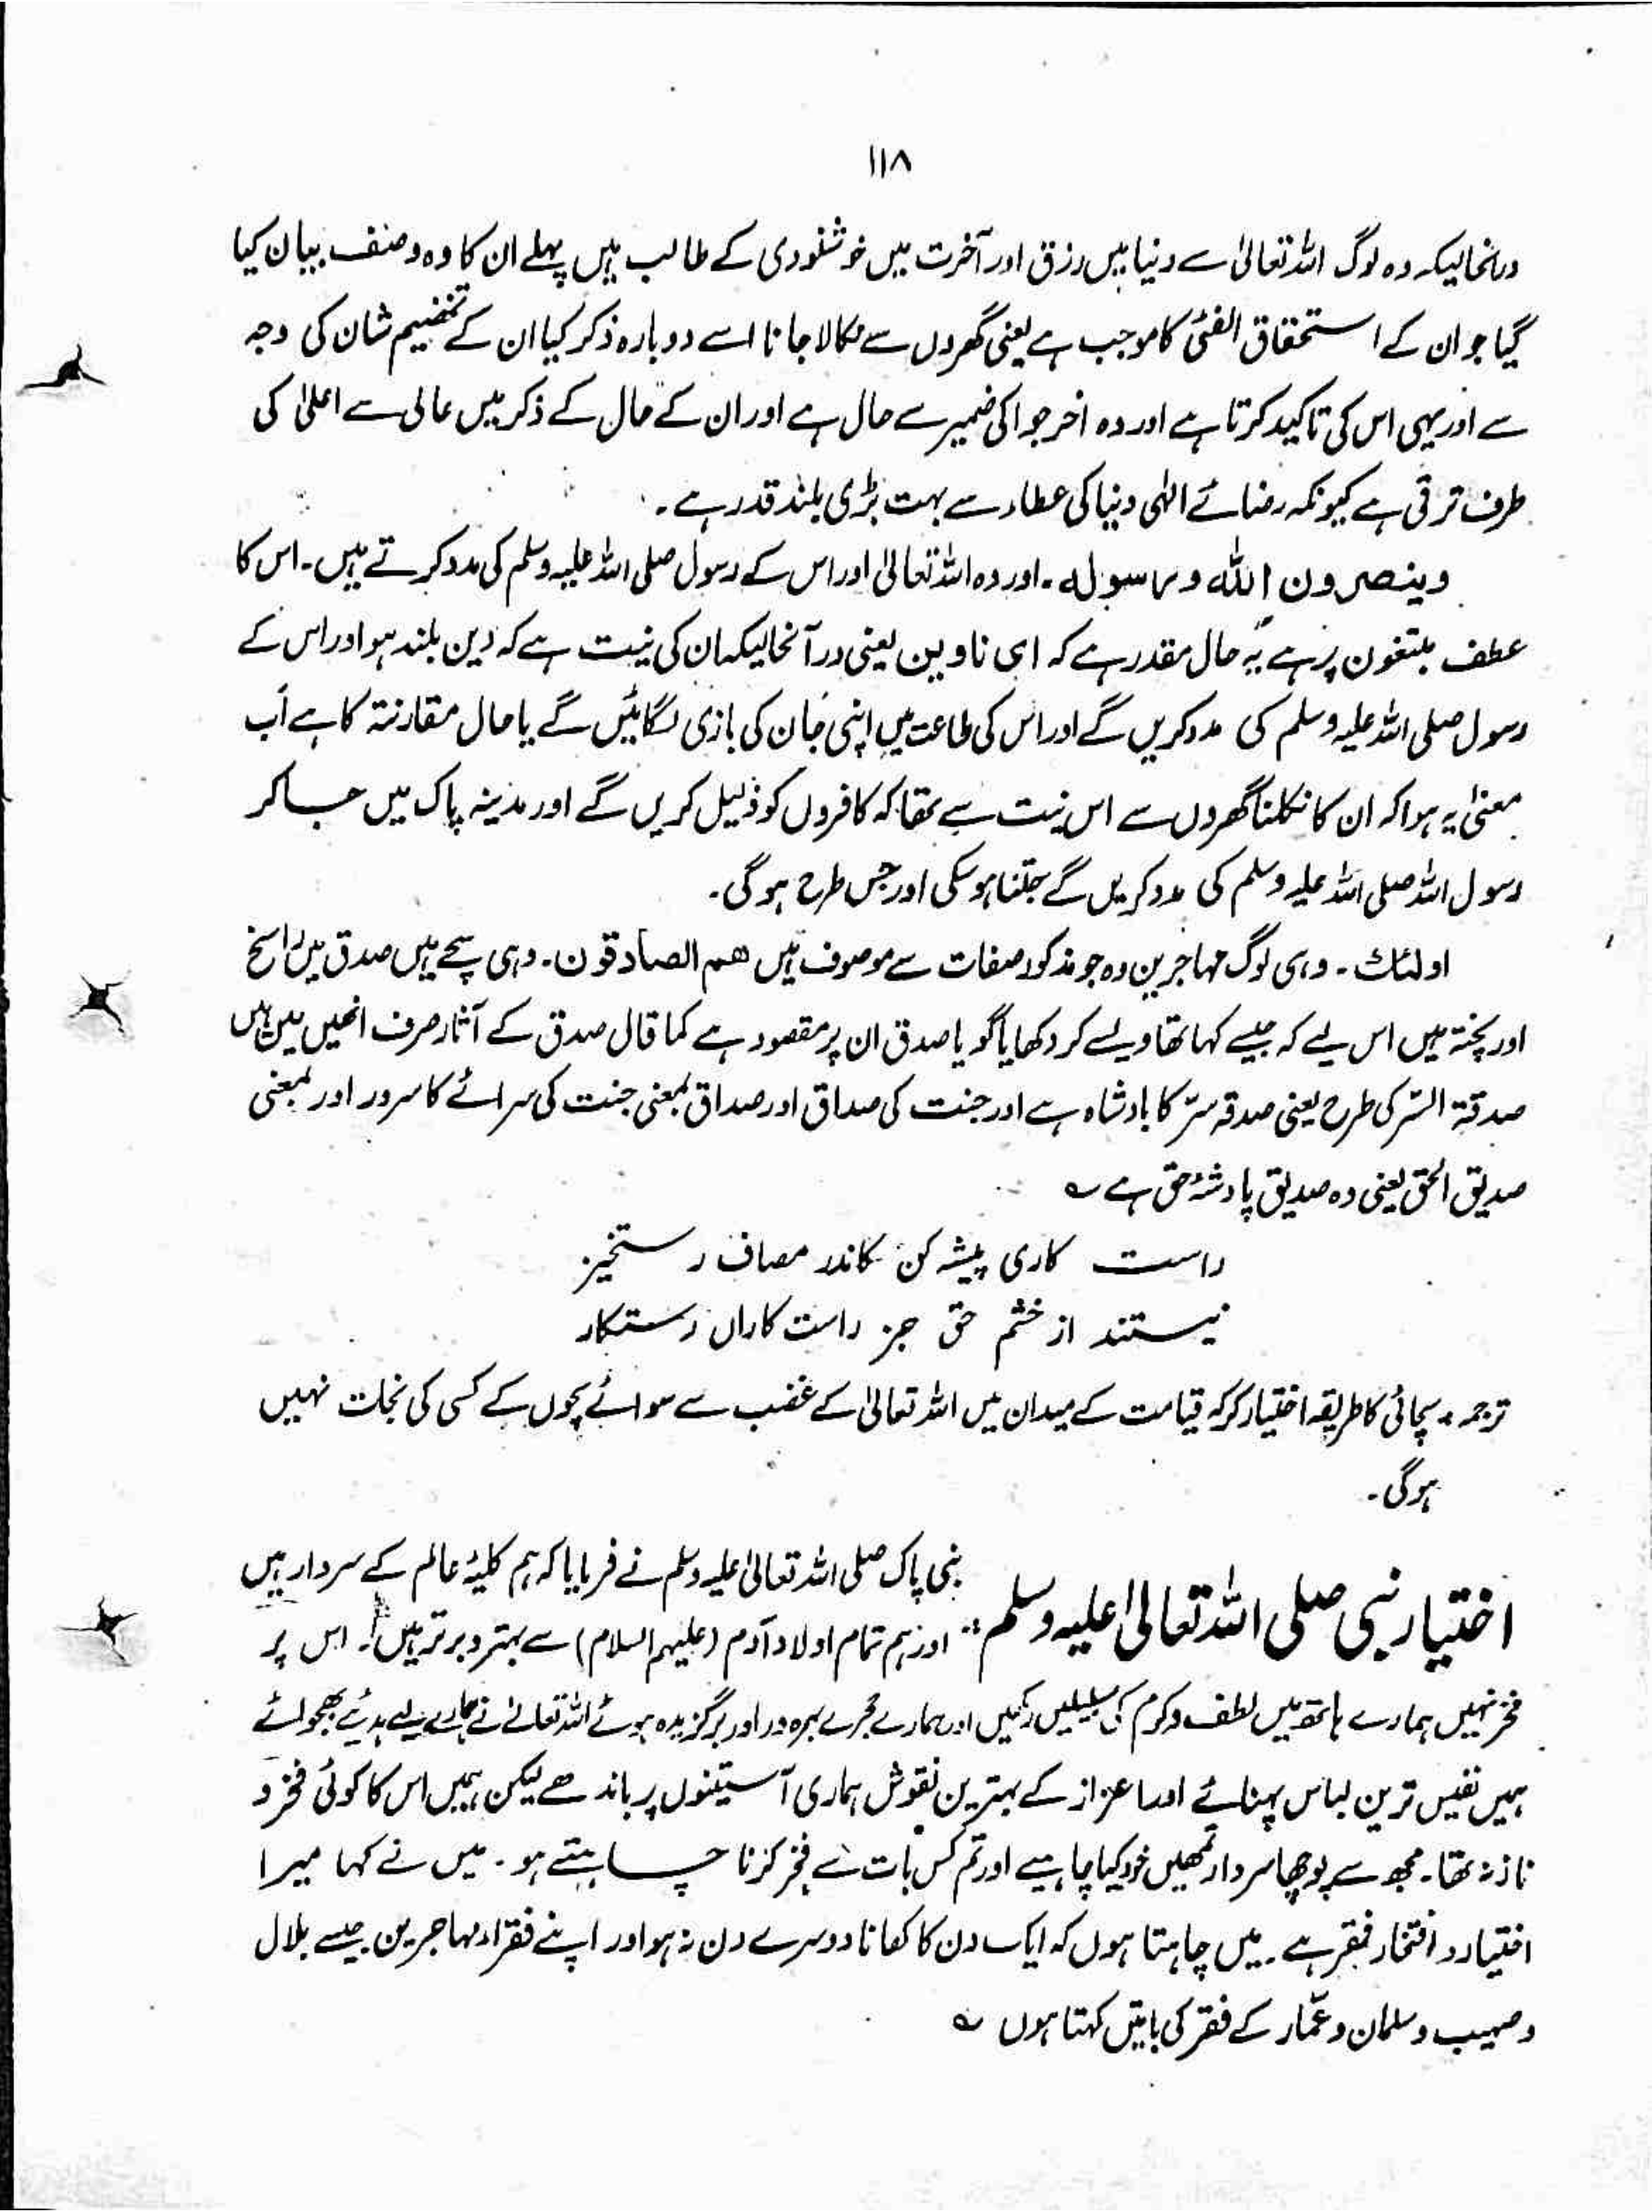 ۱۱۸
درانحالیکہ وہ لوگ اللہ تعالیٰ سے دنیا میں رزق اور آخرت میں خوشنودی کے طالب ہیں پہلے ان کا وہ وصف بیان کیا
گیا جو ان کے استحقاق الفئی کا موجب ہے یعنی گھروں سے نکالا جانا اسے دوبارہ ذکر کیا ان کے تفخیم شان کی وجہ
سے اور یہی اس کی تاکید کرتا ہے اور وہ اخرجوا کی ضمیر سے حال ہے اور ان کے حال کے ذکر میں عالی سے اعلیٰ کی
طرف ترقی ہے کیونکہ رضائے الٰہی دنیا کی عطاء سے بہت بڑی بلند قدر ہے۔
وینصرون اللہ ورسولہ۔ اور وہ اللہ تعالیٰ اور اس کے رسول صلی اللہ علیہ وسلم کی مدد کرتے ہیں۔ اس کا
عطف یبتغون پر ہے یہ حال مقدر ہے کہ ای ناوین یعنی درآنحالیکہ ان کی نیت ہے کہ دین بلند ہو اور اس کے
رسول صلی اللہ علیہ وسلم کی مدد کریں گے اور اس کی طاعت میں اپنی جان کی بازی لگائیں گے یا حال مقارنۃ کا ہے اب
معنیٰ یہ ہوا کہ ان کا نکلنا گھروں سے اس نیت سے تھا کہ کافروں کو ذلیل کریں گے اور مدینہ پاک میں جاکر
رسول اللہ صلی اللہ علیہ وسلم کی مدد کریں گے جتنا ہو سکی اور جس طرح ہوگی۔
اولٰئک۔ وہی لوگ مہاجرین وہ جو مذکور صفات سے موصوف ہیں ھم الصادقون۔ وہی سچے ہیں صدق میں راسخ
اور پختہ ہیں اس لیے کہ جیسے کہا تھا ویسے کر دکھایا گویا صدق ان پر مقصود ہے کما قال صدق کے آثار صرف انھیں میں ہیں
صدقۃ السّر کی طرح یعنی صدقہ سرّ کا بادشاہ ہے اور جنت کی صداق اور صداق بمعنی جنت کی سرائے کا سرور اور بمعنی
صدیق الحق یعنی وہ صدیق پادشہ حق ہے ؎
راست کاری پیشہ کن کاندر مصاف رستخیز
نیستند از خشم حق جز راست کاراں رستگار
ترجمہ۔ سچائی کا طریقہ اختیار کر کہ قیامت کے میدان میں اللہ تعالیٰ کے غضب سے سوائے سچوں کے کسی کی نجات نہیں
ہوگی۔
اختیار نبی صلی اللہ تعالیٰ علیہ وسلم
نبی پاک صلی اللہ تعالیٰ علیہ وسلم نے فرمایا کہ ہم کلیۂ عالم کے سردار ہیں
اور ہم تمام اولاد آدم (علیہم السلام) سے بہتر و برتر ہیں۔ اس پر
فخر نہیں ہمارے ہاتھ میں لطف و کرم کی سبیلیں رکھیں اور ہمارے حجرے بہرہ ور اور برگزیدہ ہوئے اللہ تعالےٰ نے ہمارے لیے ہدیے بھجوائے
ہمیں نفیس ترین لباس پہنائے اور اعزاز کے بہترین نقوش ہماری آستینوں پر باندھے لیکن ہمیں اس کا کوئی فخر و
ناز نہ تھا۔ مجھ سے پوچھا سردار تمھیں خود کیا چاہیے اور تم کس بات سے فخر کرنا چاہتے ہو۔ میں نے کہا میرا
اختیار و افتخار فقر ہے۔ میں چاہتا ہوں کہ ایک دن کا کھانا دوسرے دن نہ ہو اور اپنے فقراء مہاجرین جیسے بلال
و صہیب و سلمان و عمّار کے فقر کی باتیں کہتا ہوں ؎